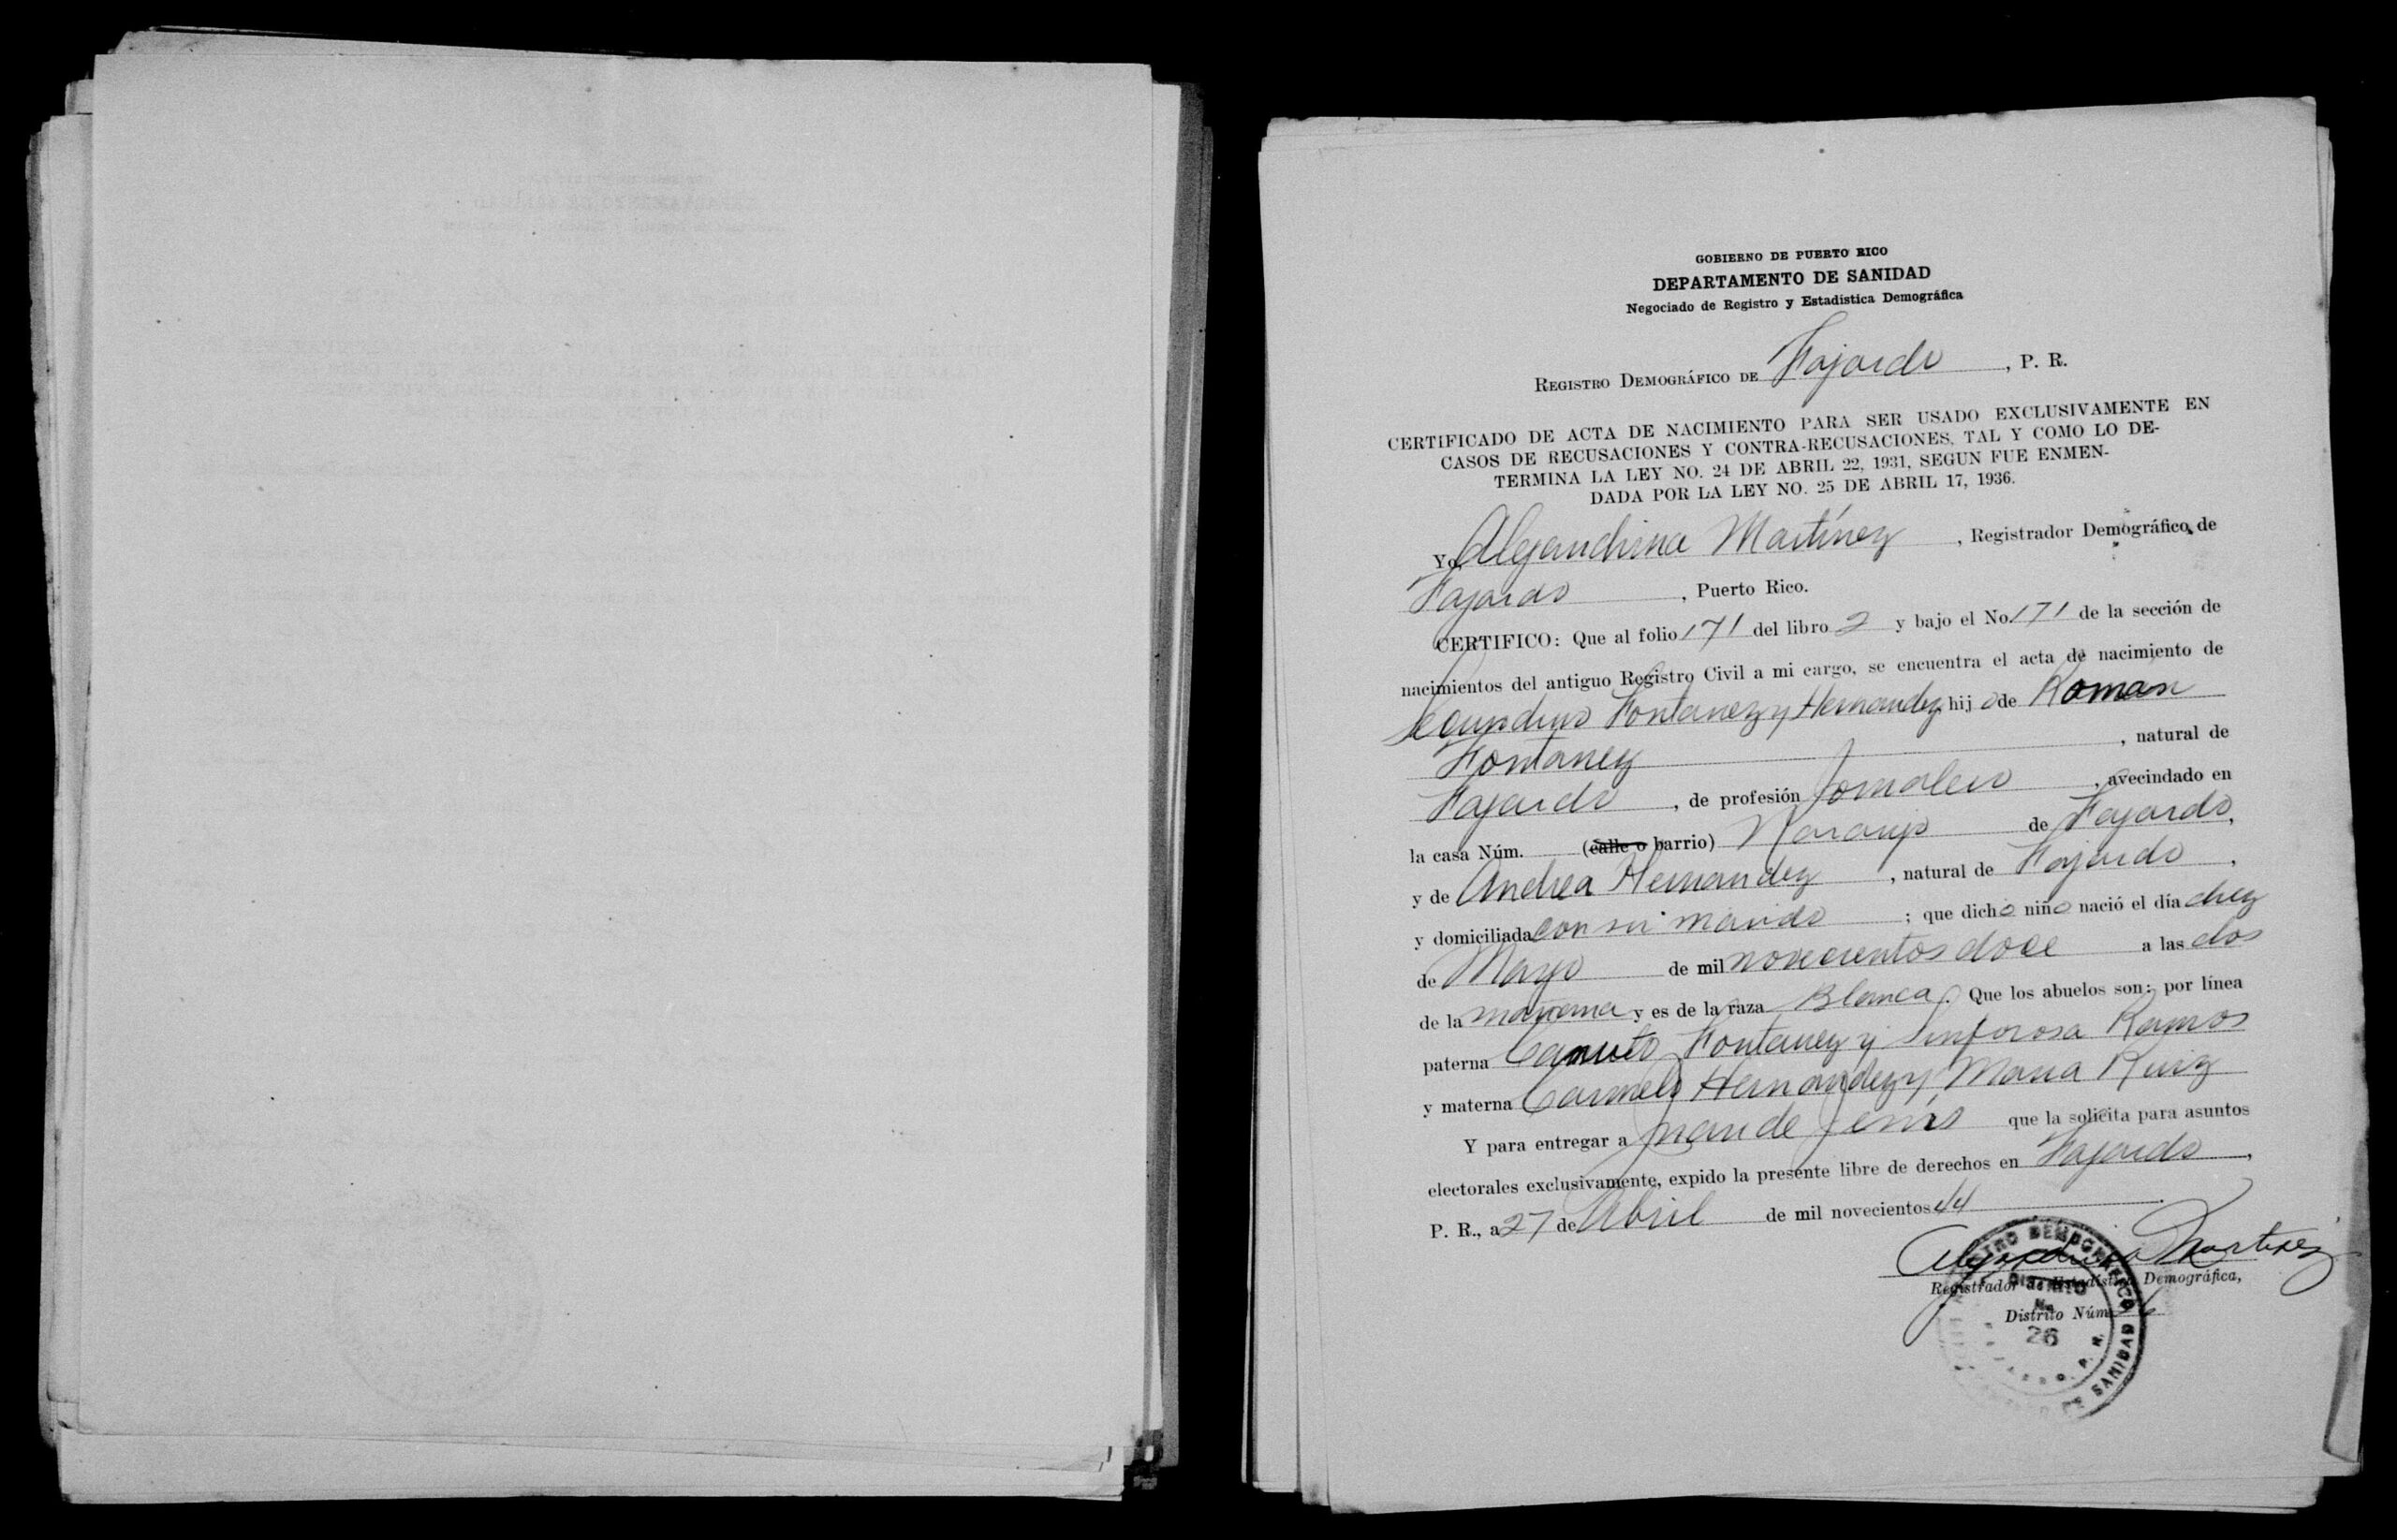 GOBIERNO DE PUERTO RICO
DEPARTAMENTO DE SANIDAD
Negociado de Registro y Estadística Demográfica
REGISTRO DEMOGRÁFICO DE Fajardo, P. R.
CERTIFICADO DE ACTA DE NACIMIENTO PARA SER USADO EXCLUSIVAMENTE EN
CASOS DE RECUSACIONES Y CONTRA-RECUSACIONES, TAL Y COMO LO DE-
TERMINA LA LEY NO. 24 DE ABRIL 22, 1931, SEGUN FUE ENMEN-
DADA POR LA LEY NO. 25 DE ABRIL 17, 1936.
Yo, Alejandrina Martínez, Registrador Demográfico de
Fajardo, Puerto Rico.
CERTIFICO: Que al folio 171 del libro 2 y bajo el No. 171 de la sección de
nacimientos del antiguo Registro Civil a mi cargo, se encuentra el acta de nacimiento de
Segundino Fontanez y Hernandez, hijo de Roman
Fontanez, natural de
Fajardo, de profesión Jornalero, avecindado en
la casa Núm. (calle o barrio) Naranjo de Fajardo,
y de Andrea Hernandez, natural de Fajardo,
y domiciliada con su marido; que dicho niño nació el día diez
de Mayo de mil novecientos doce a las dos
de la mañana y es de la raza Blanca. Que los abuelos son: por línea
paterna Canuto Fontanez y Sinforosa Ramos
y materna Carmelo Hernandez y Maria Ruiz
Y para entregar a Juan de Jesús que la solicita para asuntos
electorales exclusivamente, expido la presente libre de derechos en Fajardo,
P. R., a 27 de Abril de mil novecientos 44.
Alejandrina Martinez
Registrador de Estadística Demográfica,
Distrito Núm.
DISTRITO
No.
26